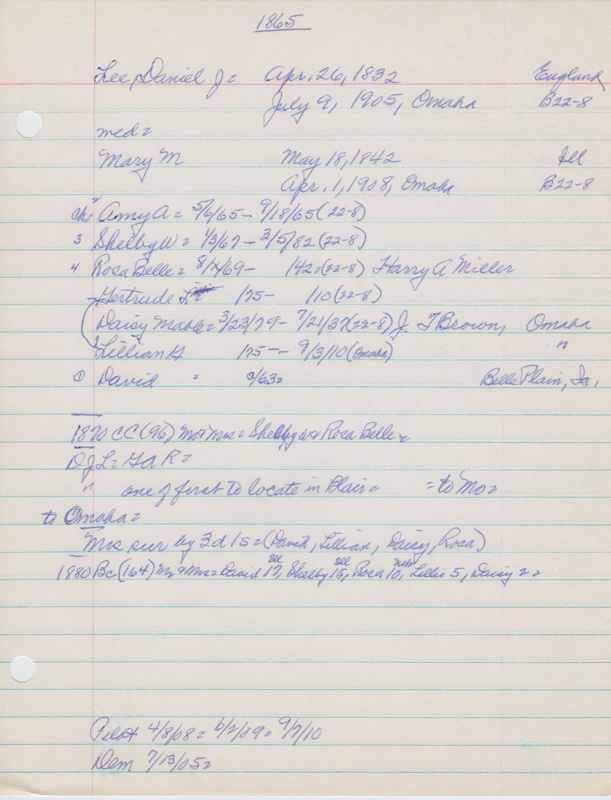 1865
Lee, Daniel J = Apr. 26, 1832 England
July 9, 1905, Omaha B22-8
med =
Mary M May 18, 1842 Ill
Apr. 1, 1908, Omaha B22-8
ch = Amy A = 5/6/65 - 9/18/65 (22-8)
3 Shelby W = 1/3/67 - 3/5/82 (22-8)
4 Rosa Belle = 8/ /69 - 142 = (22-8) Harry A Miller
Gertrude /75 - /10 (22-8)
Daisy Mable = 3/23/79 - 7/21/37 (22-8) J. T Brown, Omaha
Lillian G /75 - - 9/3/10 (Omaha) "
① David = /63 = Belle Plain, Ia.
1870 CC (96) Mr & Mrs = Shelby W & Rosa Belle =
D J L = G A R =
" one of first to locate in Blair = = to Mo =
to Omaha =
Mrs sur by 3d 1s = (David, Lillian, Daisy, Rosa)
1880 BC (164) Mr & Mrs = David 17, Ill Shelby 15, Ill Rosa 10, Neb Lillis 5, Daisy 2 =
Pilot 4/8/08 = 6/2/09 = 9/7/10
Dem 7/13/05 =